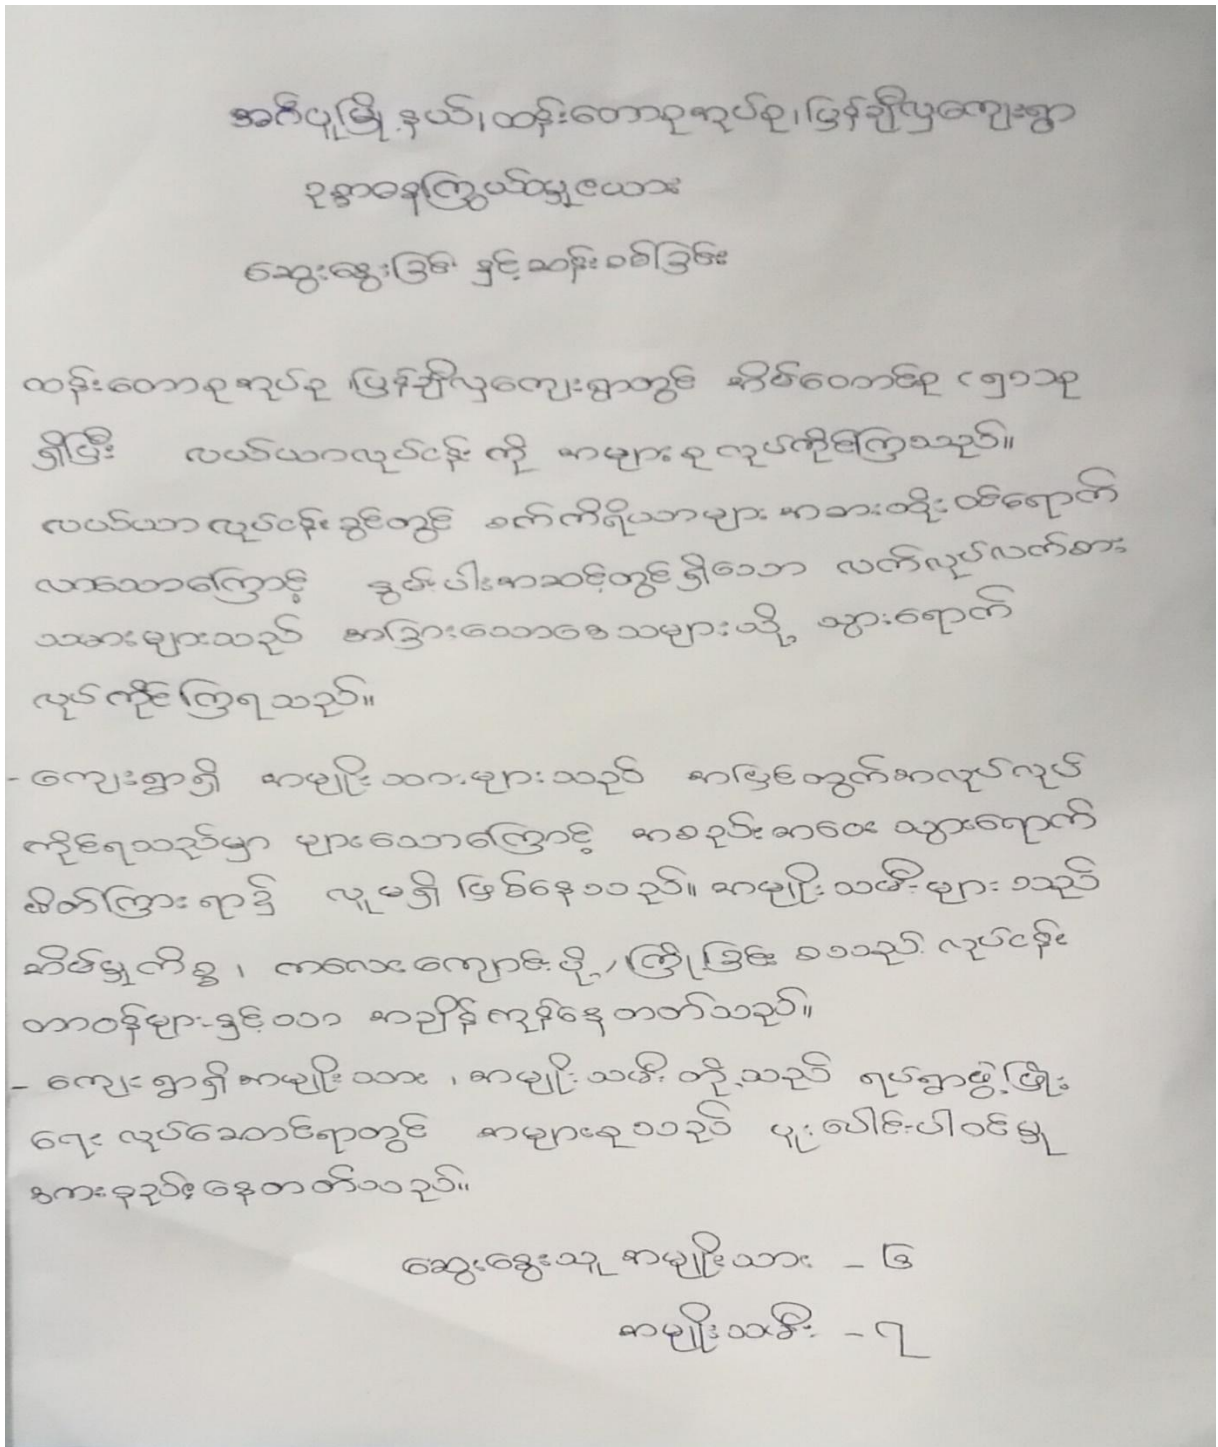 အင်္ဂပူမြို့နယ်၊ထန်းတောအုပ်စု၊မြန်ချီလှကျေးရွာ
ဥစ္စာဓနကြွယ်ဝမှုဇယား
ဆွေးနွေးခြင်း နှင့်ဆန်းစစ်ခြင်း
ထန်းတောအုပ်စု မြန်ချီလှကျေးရွာတွင် အိမ်ထောင်စု ၄၅၁ခု
ရှိပြီး လယ်ယာလုပ်ငန်း ကို အများစု လုပ်ကိုင်ကြသည်။
လယ်ယာလုပ်ငန်းခွင်တွင် စက်ကိရိယာများ အစားထိုးဝင်ရောက်
လာသောကြောင့် နွမ်းပါးအဆင့်တွင်ရှိသော လက်လုပ်လက်စား
သမားများသည် အခြားသောဒေသများသို့ သွားရောက်
လုပ်ကိုင်ကြရသည်။
- ကျေးရွာရှိ အမျိုးသားများသည် အပြင်ထွက်အလုပ်လုပ်
ကိုင်ရသည်မှာ များသောကြောင့် အစည်းအဝေး သွားရောက်
ဖိတ်ကြားရာ၌ လူမရှိ ဖြစ်နေသည်။ အမျိုးသမီးများသည်
အိမ်မှုကိစ္စ ၊ ကလေးကျောင်းပို့/ကြိုခြင်း စသည် လုပ်ငန်း
တာဝန်များနှင့်သာ အချိန်ကုန်နေတတ်သည်။
- ကျေးရွာရှိအမျိုးသား ၊အမျိုးသမီးတို့သည် ရပ်ရွာဖွံ့ဖြိုး
ရေးလုပ်ဆောင်ရာတွင် အများစုသည် ပူးပေါင်းပါဝင်မှု
အားနည်းနေတတ်သည်။
ဆွေးနွေးသူ အမျိုးသား - ၆
အမျိုးသမီး - ၇